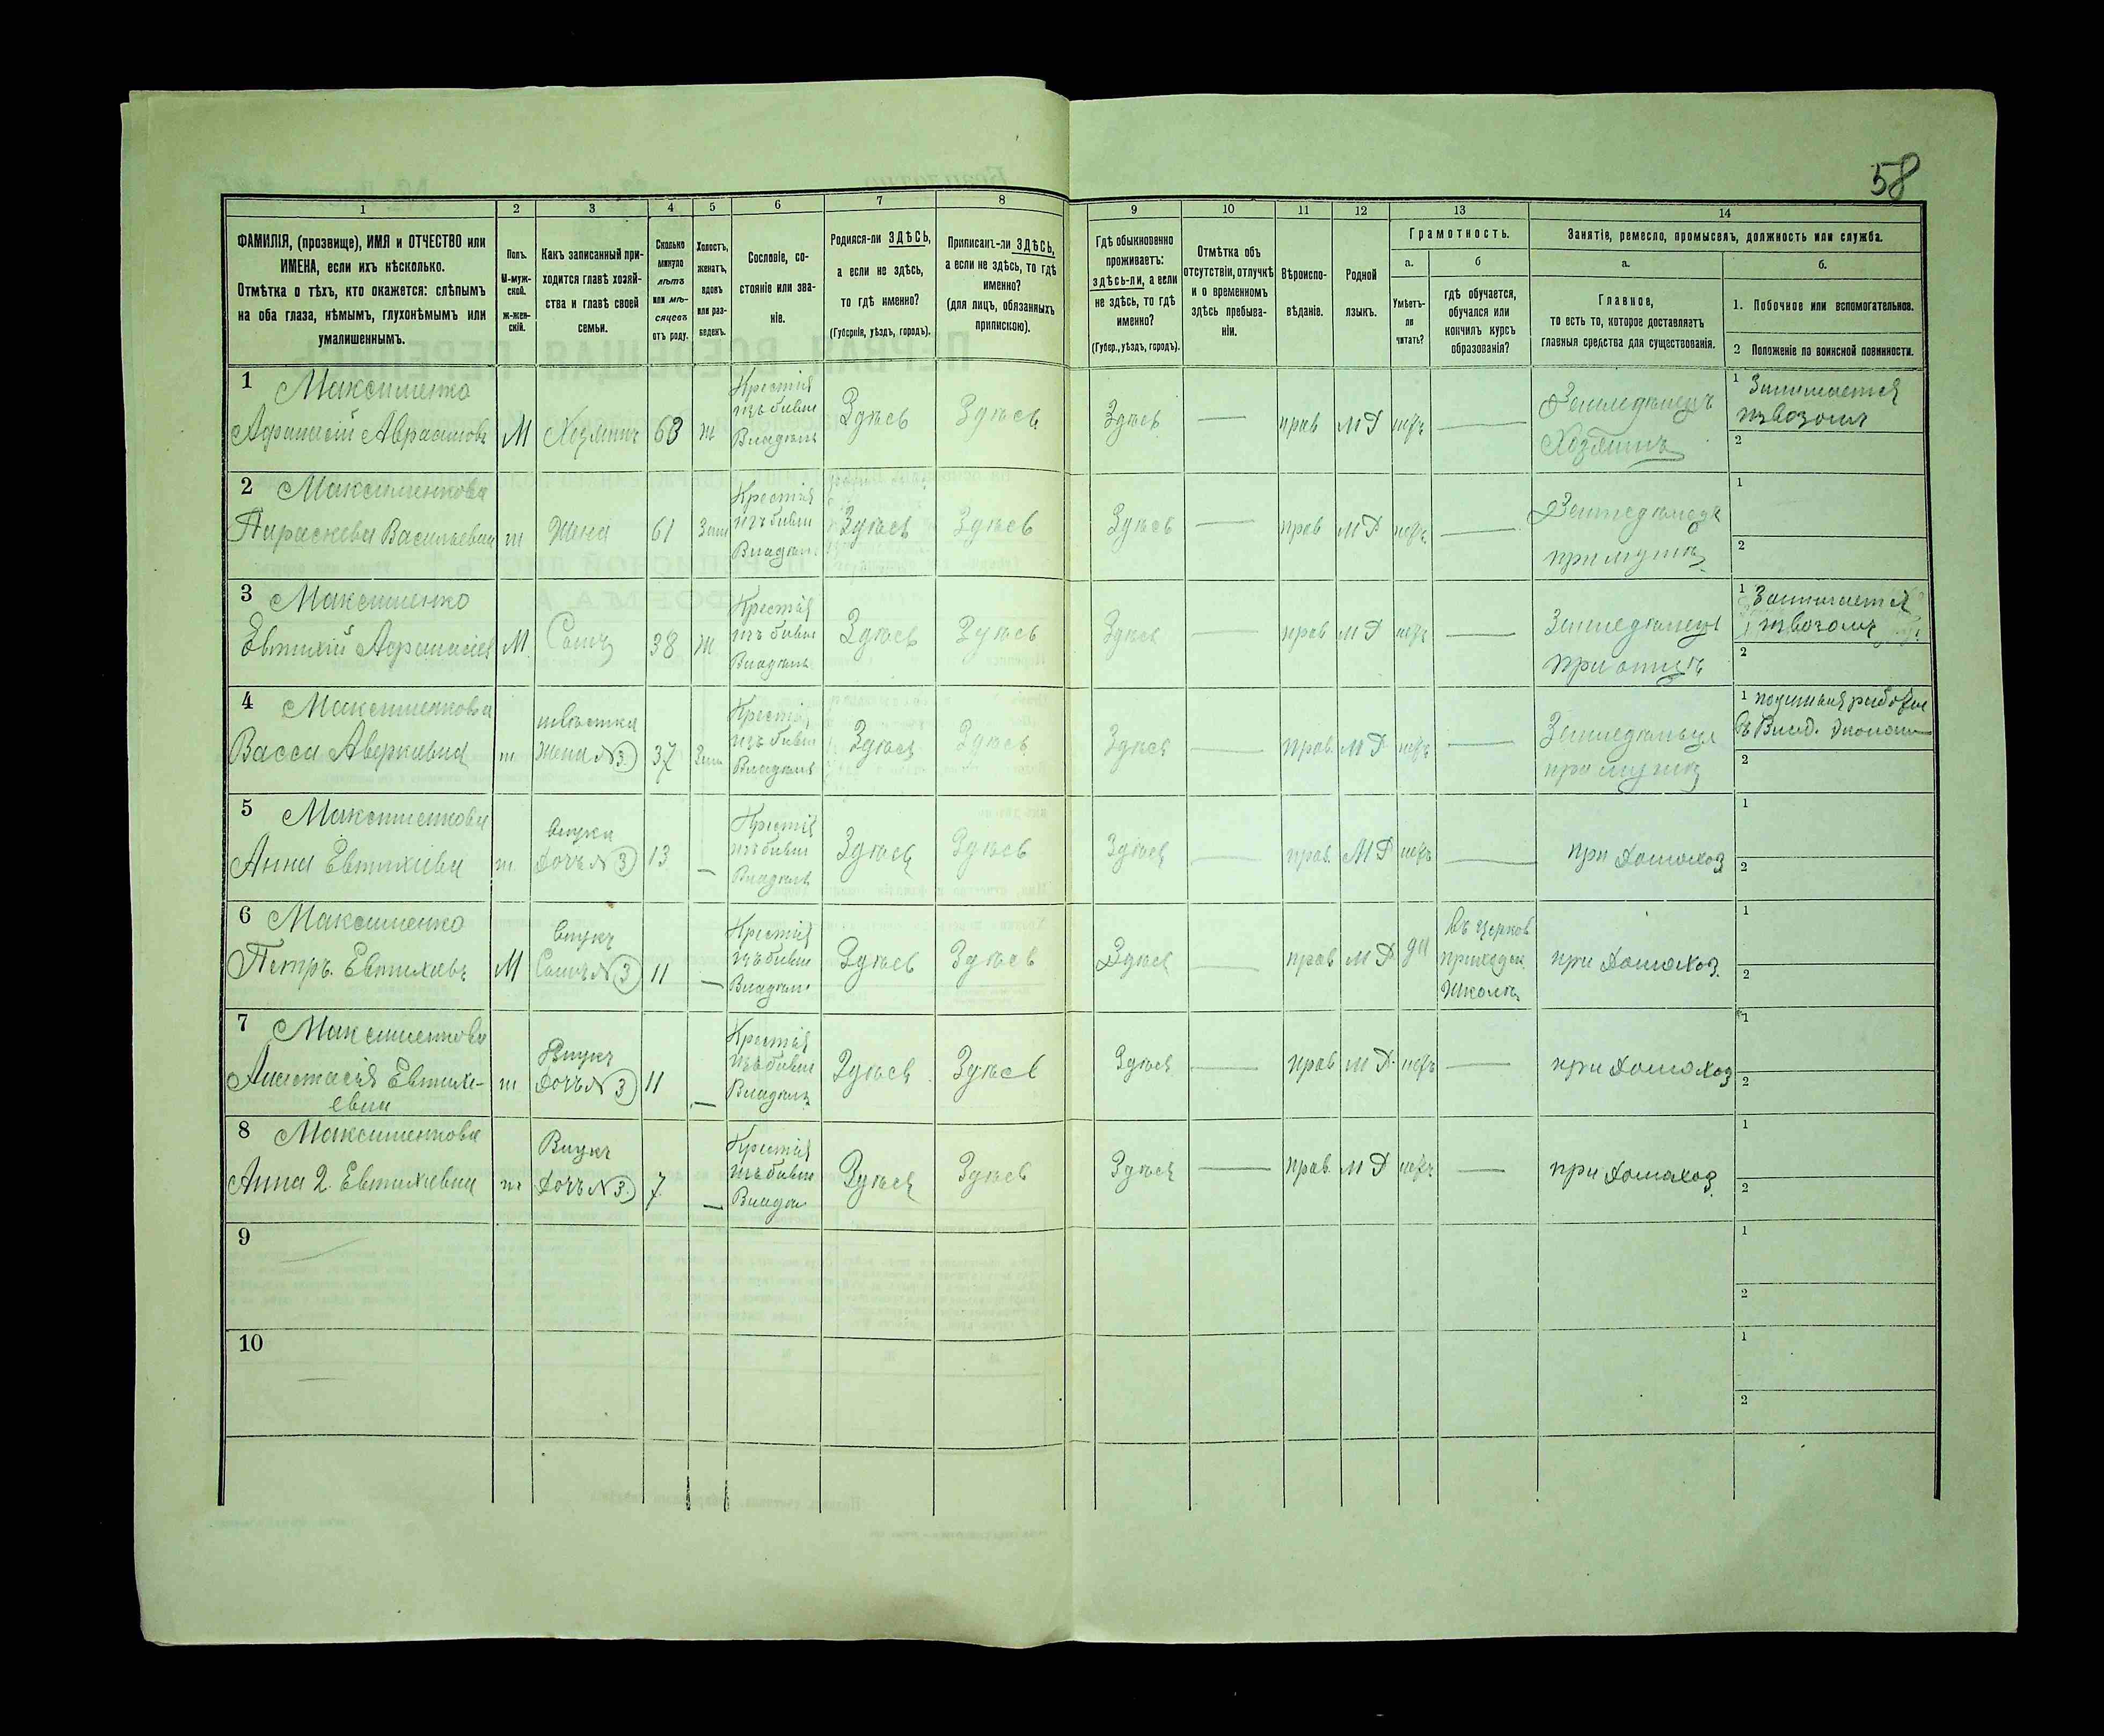 58
1
2
3
4
5
6
7
8
9
10
11
12
13
14
ФАМИЛІЯ, (прозвище), ИМЯ и ОТЧЕСТВО или
ИМЕНА, если ихъ нѣсколько.
Отмѣтка о тѣхъ, кто окажется: слѣпымъ
на оба глаза, нѣмымъ, глухонѣмымъ или
умалишеннымъ.
Полъ.
М-муж-
ской.
ж-жен-
скій.
Какъ записанный при-
ходится главѣ хозяй-
ства и главѣ своей
семьи.
Сколько
минуло
лѣтъ
или мѣ-
сяцевъ
отъ роду.
Холостъ,
женатъ,
вдовъ
или раз-
веденъ.
Сословіе, со-
стояніе или зва-
ніе.
Родился-ли ЗДѢСЬ,
а если не здѣсь,
то гдѣ именно?
(Губернія, уѣздъ, городъ).
Приписанъ-ли ЗДѢСЬ,
а если не здѣсь, то гдѣ
именно?
(для лицъ, обязанныхъ
припискою).
Гдѣ обыкновенно
проживаетъ:
здѣсь-ли, а если
не здѣсь, то гдѣ
именно?
(Губер., уѣздъ, городъ).
Отмѣтка объ
отсутствіи, отлучкѣ
и о временномъ
здѣсь пребыва-
ніи.
Вѣроиспо-
вѣданіе.
Родной
языкъ.
Грамотность.
а.
б
Умѣетъ-
ли
читать?
гдѣ обучается,
обучался или
кончилъ курсъ
образованія?
Занятіе, ремесло, промыселъ, должность или служба.
а.
б.
Главное,
то есть то, которое доставляетъ
главныя средства для существованія.
1. Побочное или вспомогательное.
2 Положеніе по воинской повинности.
1 Максименко
Афанасій Аврамовъ М Хозяинъ 63 ж Здѣсь Здѣсь Здѣсь — прав МР нѣтъ — Земледѣлецъ
Хозяинъ
1 Занимается
извозом
2
2 Максименкова
Параскева Васильевна ж Жена 61 Зам Здѣсь Здѣсь Здѣсь — прав МР нѣтъ — Земледѣлецъ
при мужѣ
1
2
3 Максименко
Евтихій Афанасіев М Сынъ 38 ж Здѣсь Здѣсь Здѣсь — прав МР нѣтъ — Земледѣлецъ
при отцѣ
1 Занимается
извозомъ
2
4 Максименкова
Васса Аверкіевна ж невѣстка
жена №3 37 Зам Здѣсь Здѣсь Здѣсь — прав. МР нѣтъ — Земледѣлецъ
при мужѣ
1
2
5 Максименкова
Анна Евтихіева ж внука
дочь №3 13 — Здѣсь Здѣсь Здѣсь — прав. МР нѣтъ — при домохоз
1
2
6 Максименко
Петръ Евтихіевъ М внукъ
Сынъ №3 11 — Здѣсь Здѣсь Здѣсь — прав МР да въ церков
приходск.
школѣ
при домохоз.
1
2
7 Максименкова
Анастасія Евтихі-
евна ж Внукъ
дочь №3 11 — Здѣсь Здѣсь Здѣсь — прав МР нѣтъ — при домохоз
1
2
8 Максименкова
Анна 2. Евтихіевна ж Внукъ
дочь №3. 7 — Здѣсь Здѣсь Здѣсь — прав. МР нѣтъ — при домохоз.
1
2
9
1
2
10
1
2